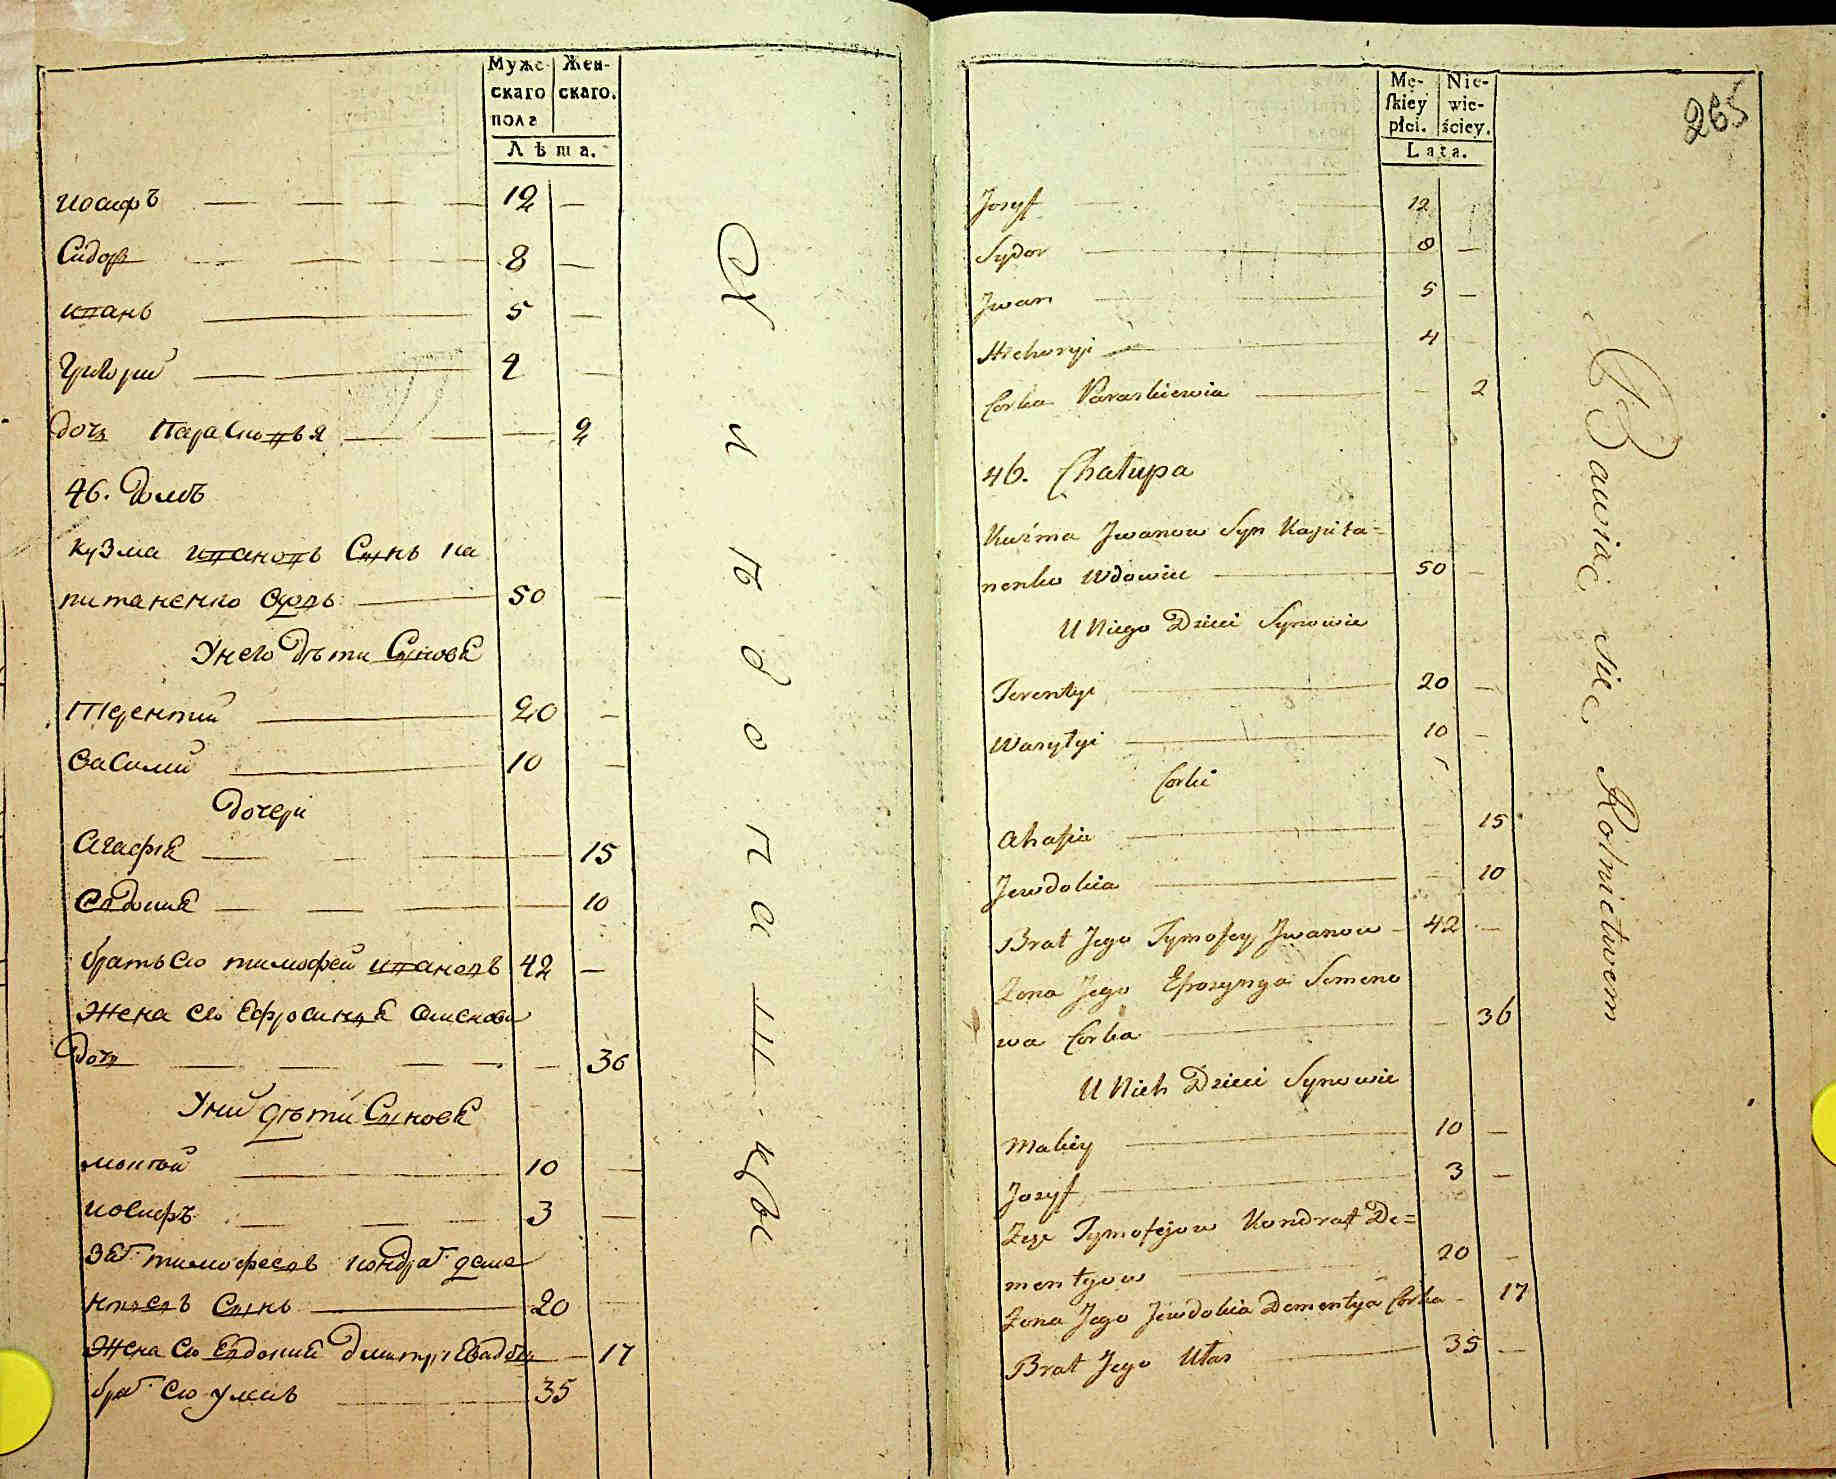 Муже- Жен-
скаго скаго.
пола
Лѣта.
иосифъ 12
Сидоръ 8
иванъ 5
Григорий 4
дочь Парасковья 2
46. домъ
кузма ивановъ Сынъ ка
питаненко вдовъ 50
У него дѣти Сыновя
Терентий 20
василий 10
дочери
Агафия 15
Евдокия 10
братъ его тимофей ивановъ 42
жена его Ефросиния семенова
дочь 36
У них дѣти Сыновя
мокей 10
иосифъ 3
зят тимофеевъ кондрат деме
нтьевъ Сынъ 20
жена его Евдокия дмитриева дочь 17
брат его улас 35
Хлѣбопашцы
265
Mę- Nie-
skiey wie-
płci. ściey.
Lata.
Jozyf 12
Sydor 8
Jwan 5
Hrehoryi 4
Corka Paraskiewia 2
46. Chałupa
Kuźma Jwanow Syn Kapita=
nenko Wdowiec 50
U Niego Dzieci Synowie
Terentyi 20
Wasyłyi 10
Corki
Ahafia 15
Jewdokia 10
Brat Jego Tymofey Jwanow 42
Zona Jego Efrosynya Semeno
wa Corka 36
U Nich Dzieci Synowie
Makiey 10
Jozyf 3
Zęć Tymofejow Kondrat De=
mentyow 20
Zona Jego Jewdokia Dementya Corka 17
Brat Jego Ułas 35
Bawiąc się Rolnictwem